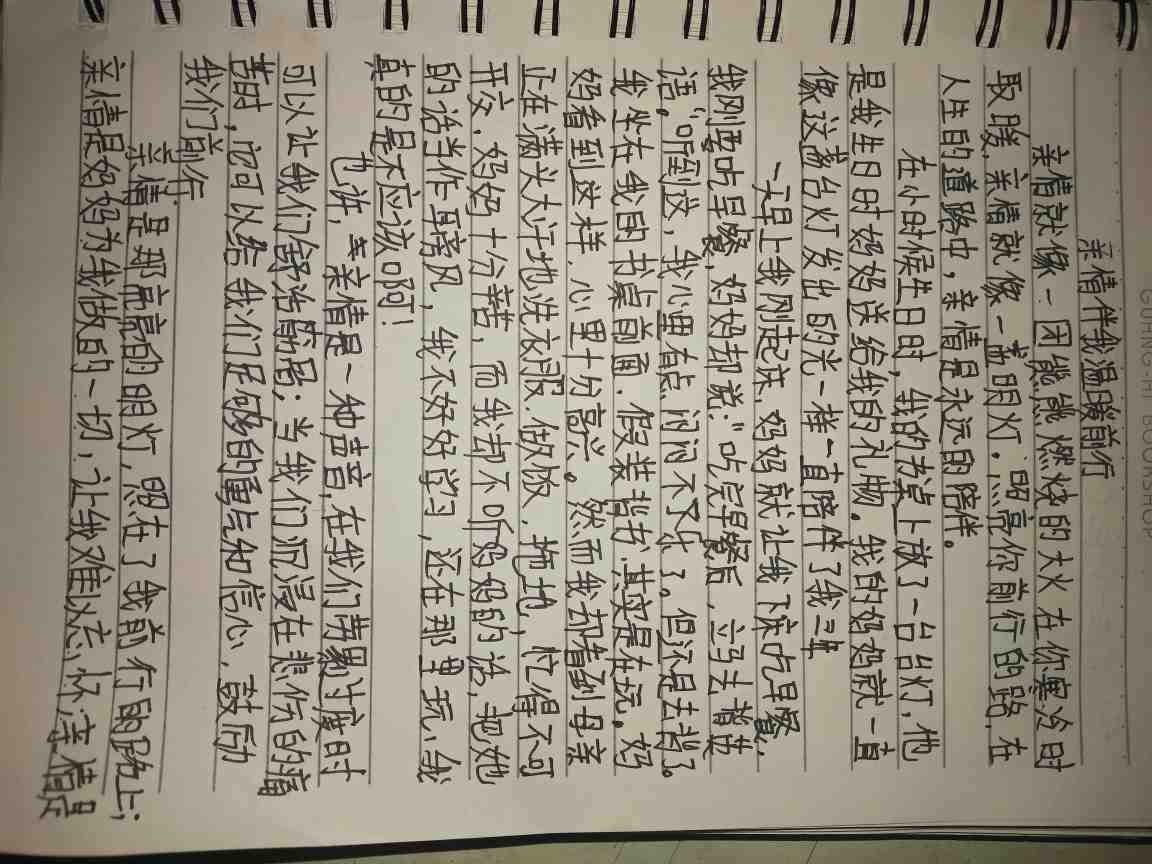 GUANG HI BOOKSHOP
亲情伴我温暖前行
亲情就像一团熊熊燃烧的大火在你寒冷时
取暖,亲情就像一盏明灯。照亮你前行的路,在
人生的道路中,亲情是永远的陪伴。
在小时候生日时,我的书桌上放了一台台灯,他
是我生日时妈妈送给我的礼物。我的妈妈就一直
像这盏台灯发出的光一样一直陪伴了我三年
一天早上我刚起床,妈妈就让我下床吃早餐,
我刚要吃早餐,妈妈却说:“吃完早餐后,立马去背英
语。”听到这,我心里有点闷闷不乐了。但还是去背了。
我坐在我的书桌前面.假装背书,其实是在玩。妈
妈看到这样.心里十分高兴。然而我却看到母亲
正在满头大汗地洗衣服.做饭,拖地,忙得不可
开交.妈妈十分苦,而我却不听妈妈的话,把她
的话当作耳旁风,我不好好学习,还在那里玩,我
真的是不应该啊!
也许,亲情是一种声音,在我们劳累过度时
可以让我们舒活筋骨;当我们沉浸在悲伤的痛
苦时,它可以给我们足够的勇气和信心,鼓励
我们前行
亲情是那亮亮的明灯,照在了我前行的路上;
亲情是妈妈为我做的一切,让我难以忘怀;亲情是